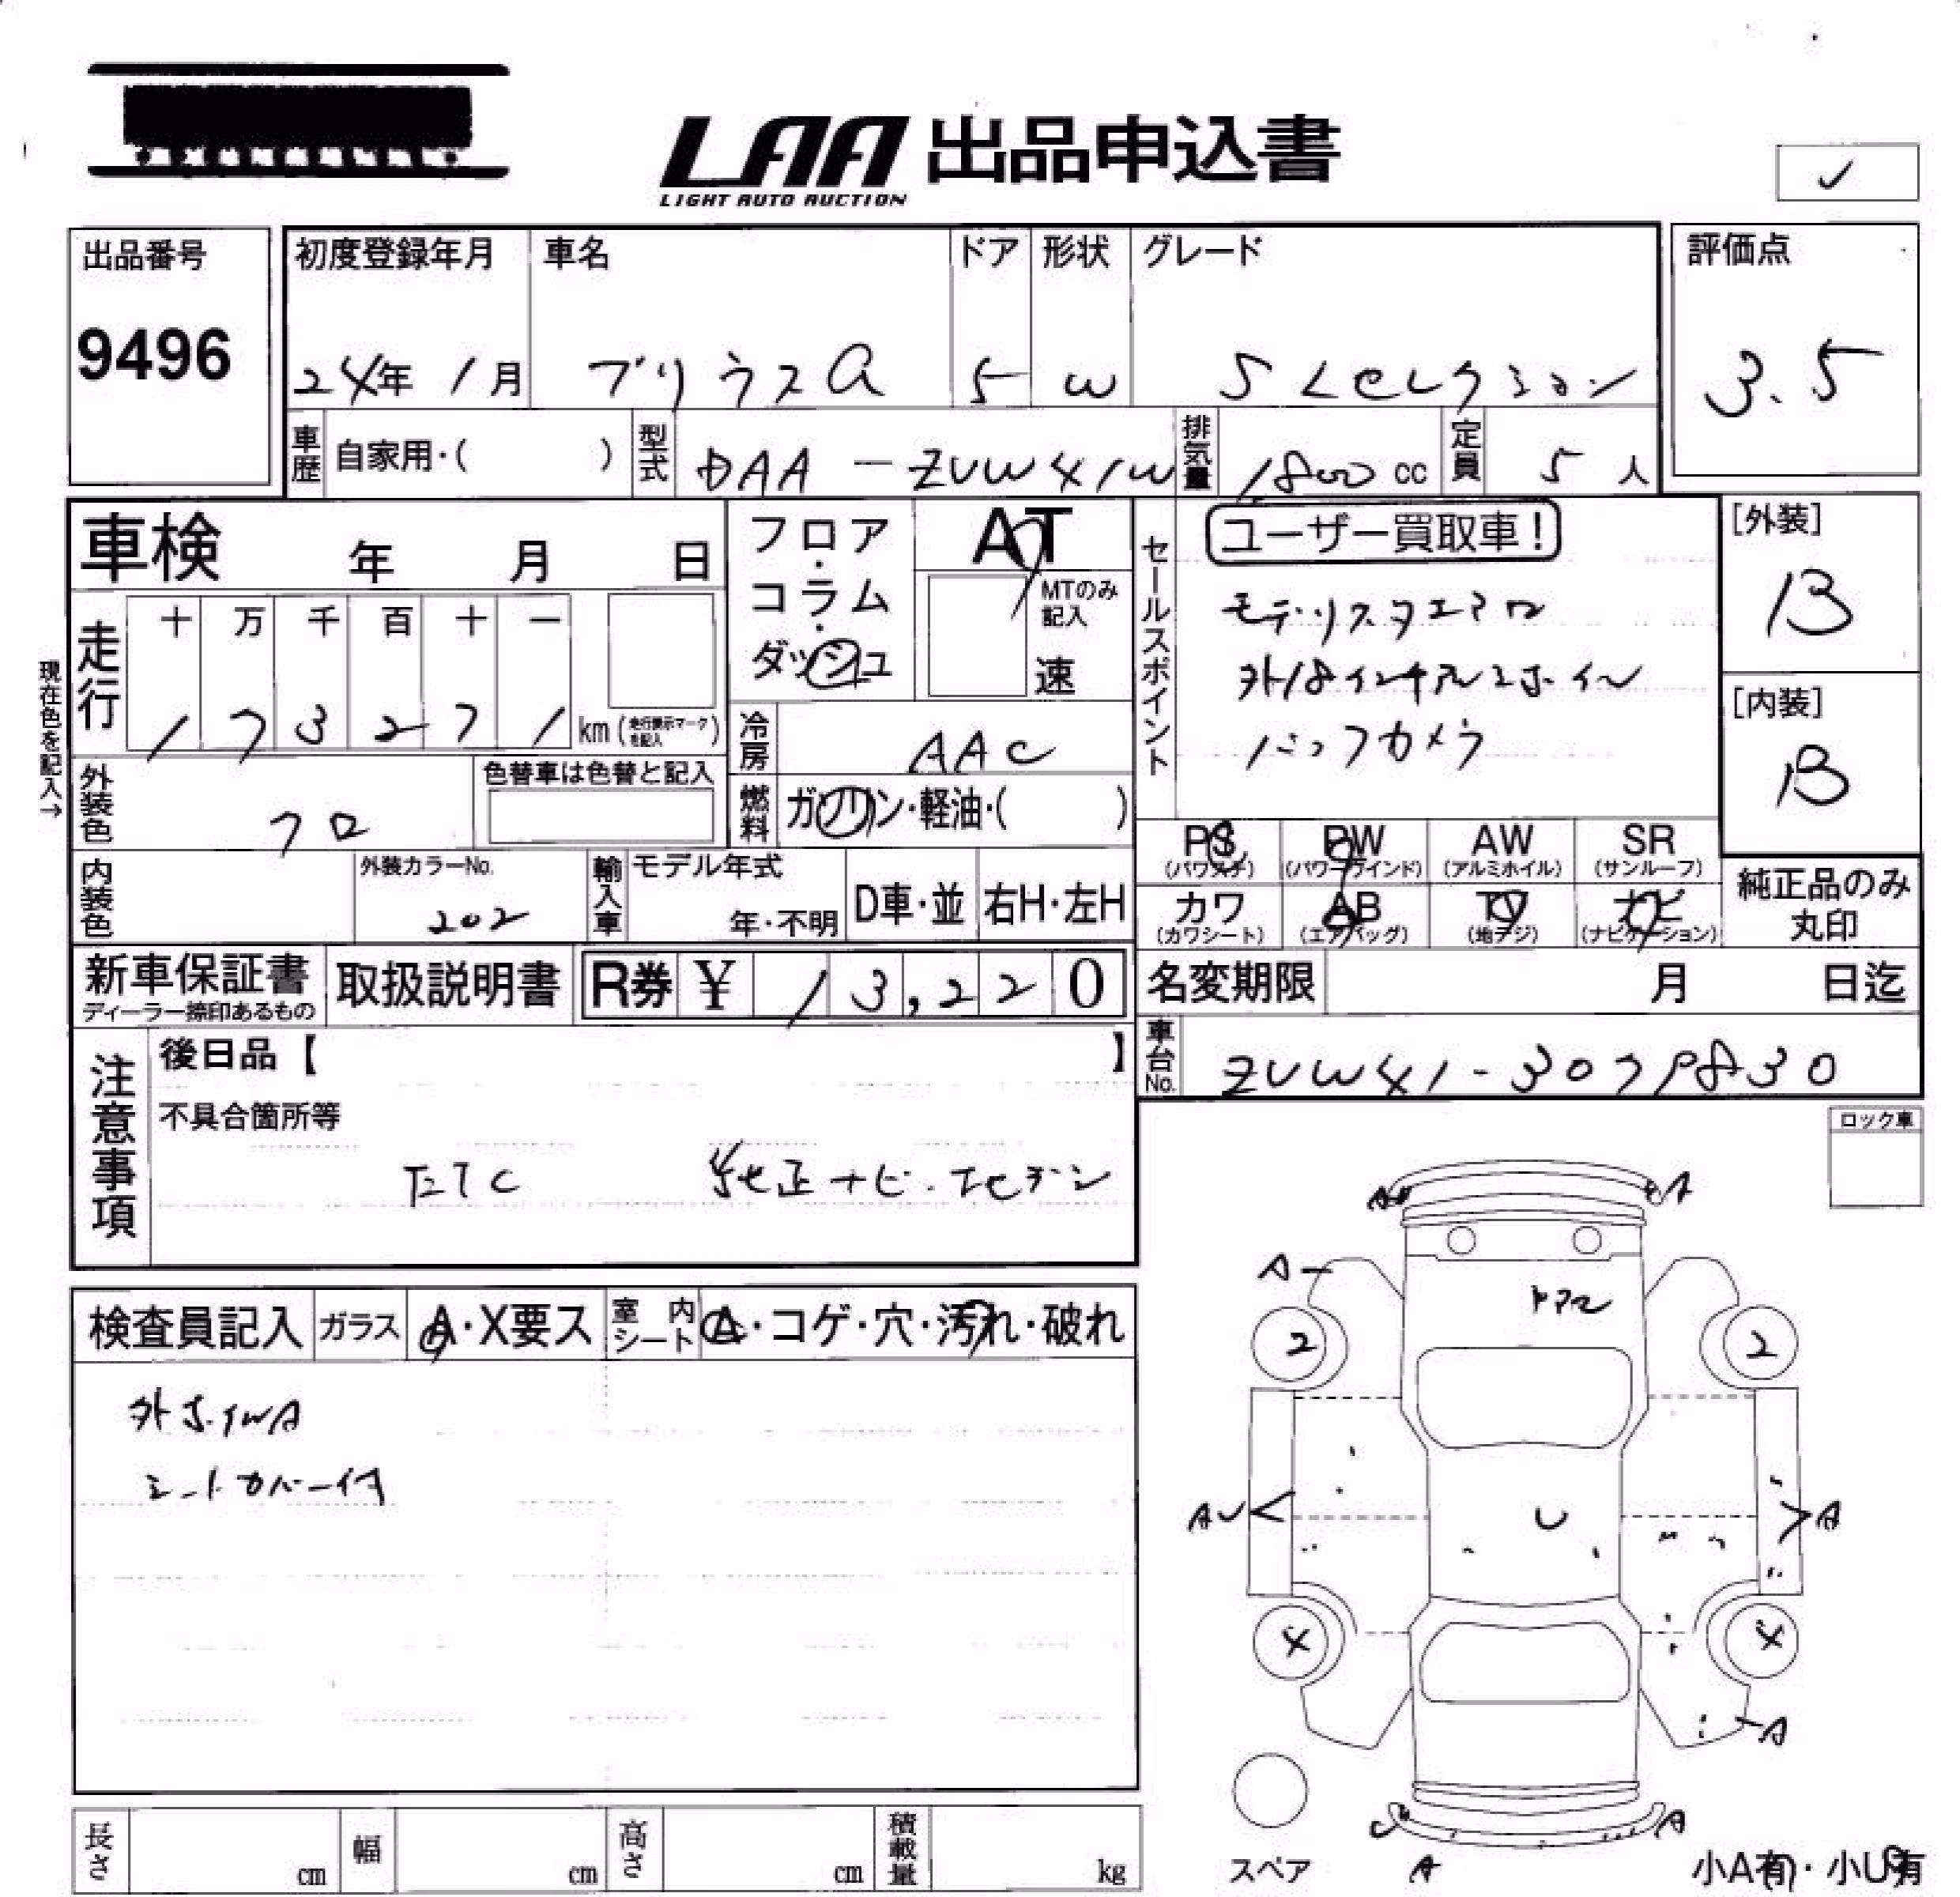 LAA 出品申込書
LIGHT AUTO AUCTION
✓
出品番号
9496
初度登録年月
24年 1月
車名
プリウスα
ドア
5
形状
W
グレード
S Lセレクション
評価点
3.5
車歴 自家用・( )
型式 DAA-ZVW41W
排気量 1800 cc
定員 5 人
車検 年 月 日
フロア・コラム・ダッシュ
AT
MTのみ記入
速
セールスポイント
ユーザー買取車!
モデリスタエアロ
外18インチアルミホイル
バックカメラ
[外装]
B
[内装]
B
現在色を記入→
走行
十 万 千 百 十 一
1 7 3 2 7 1 km (走行提示マークを記入)
冷房 AAC
外装色 クロ
色替車は色替と記入
燃料 ガソリン・軽油・( )
PS (パワステ)
PW (パワーウインド)
AW (アルミホイル)
SR (サンルーフ)
カワ (カワシート)
AB (エアバッグ)
TV (地デジ)
ナビ (ナビゲーション)
純正品のみ
丸印
内装色
外装カラーNo.
202
輸入車
モデル年式
年・不明
D車・並
右H・左H
新車保証書
ディーラー捺印あるもの
取扱説明書
R券 ¥ 13,220
名変期限 月 日迄
車台No. ZVW41-3079830
注意事項
後日品【 】
不具合箇所等
ETC 純正ナビ・
ロック車
検査員記入 ガラス A・X要ス 室内シート A・コゲ・穴・汚れ・破れ
外ホイルA
シートカバー付
A
A
A
2
2
U
AU
A
X
X
A
U
A
A
スペア
小A有・小U有
長さ cm
幅 cm
高さ cm
積載量 kg